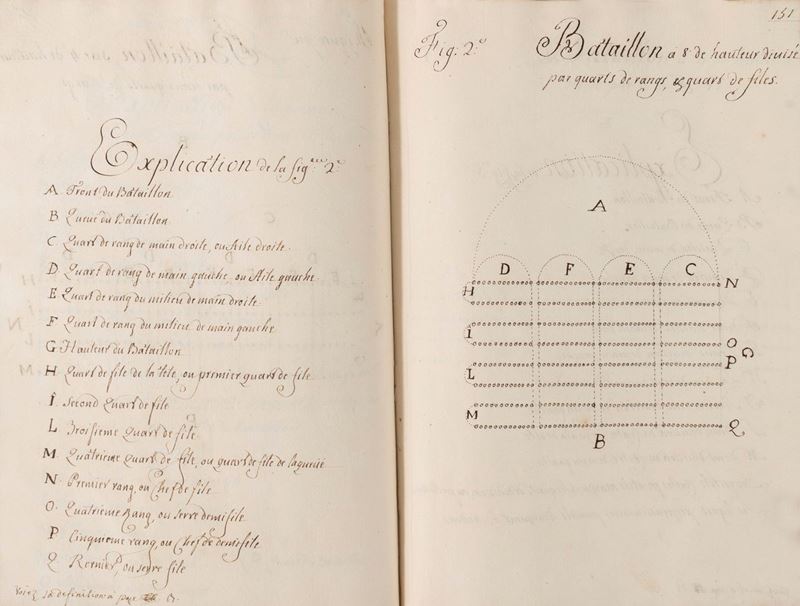 Explication de la fig.^ece 2.^e
A Front du Bataillon
B Queue du Bataillon
C Quart de rang de main droite, ou Aile droite.
D Quart de rang de main gauche, ou Aile gauche
E Quart de rang du milieu de main droite
F Quart de rang du milieu de main gauche
G Hauteur du Bataillon
H Quart de file de la tête, ou premier quart de file
I Second Quart de file
L Troisieme Quart de file
M Quatrieme Quart de file, ou quart de file de la queüe
N Premier rang, ou Chef de file
O Quatrieme Rang, ou serre demifile
P Cinquieme rang, ou Chef de demifile
Q Dernier, ou serre file
Voiez sa definition à page
151
Fig. 2.^e Bataillon a 8 de hauteur divisé
par quarts de rangs, & quart de files.
A
D F E C
H N
I O
G
L P
M Q
B